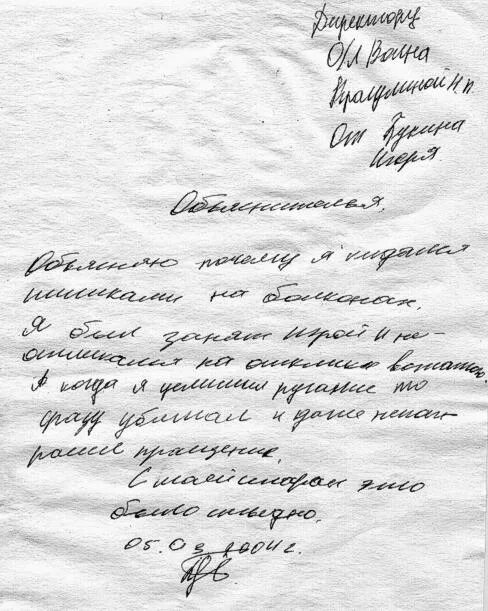 Директору
О/Л Волна
От Букина
Игоря
Объяснительная.
Объясняю почему я кидался
шишками на балконах.
Я был занят игрой и не
откликался на отклики вожатой.
А когда я услышил ругание то
сразу убежал и даже непоп-
росил пращение.
С маей стороны это
было стыдно.
05.03.2004г.